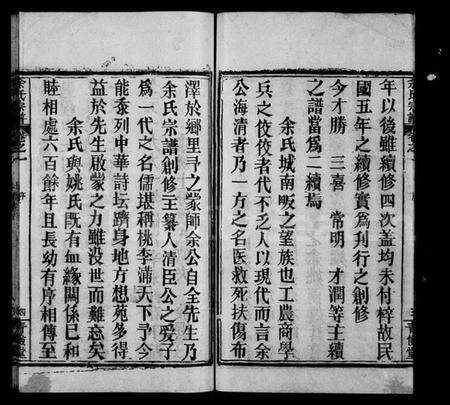 年以後雖續修四次蓋均未付梓故民
國五年之續修實為刊行之創修
今才勝 三喜 常明 才潤等主續
之譜當為二續焉
余氏城南畈之望族也工農商學
兵之佼佼者代不乏人以現代而言余
公海清者乃一方之名医救死扶傷布
澤於鄉里予之蒙師余公自全先生乃
余氏宗譜創修主纂人清臣公之爱子
為一代之名儒堪稱桃李滿天下予今
能忝列中華詩坛躋身地方想菀多得
益於先生啟蒙之力雖没世而難忘矣
余氏與姚氏既有血緣關係已和
睦相處六百餘年且長幼有序相傳至